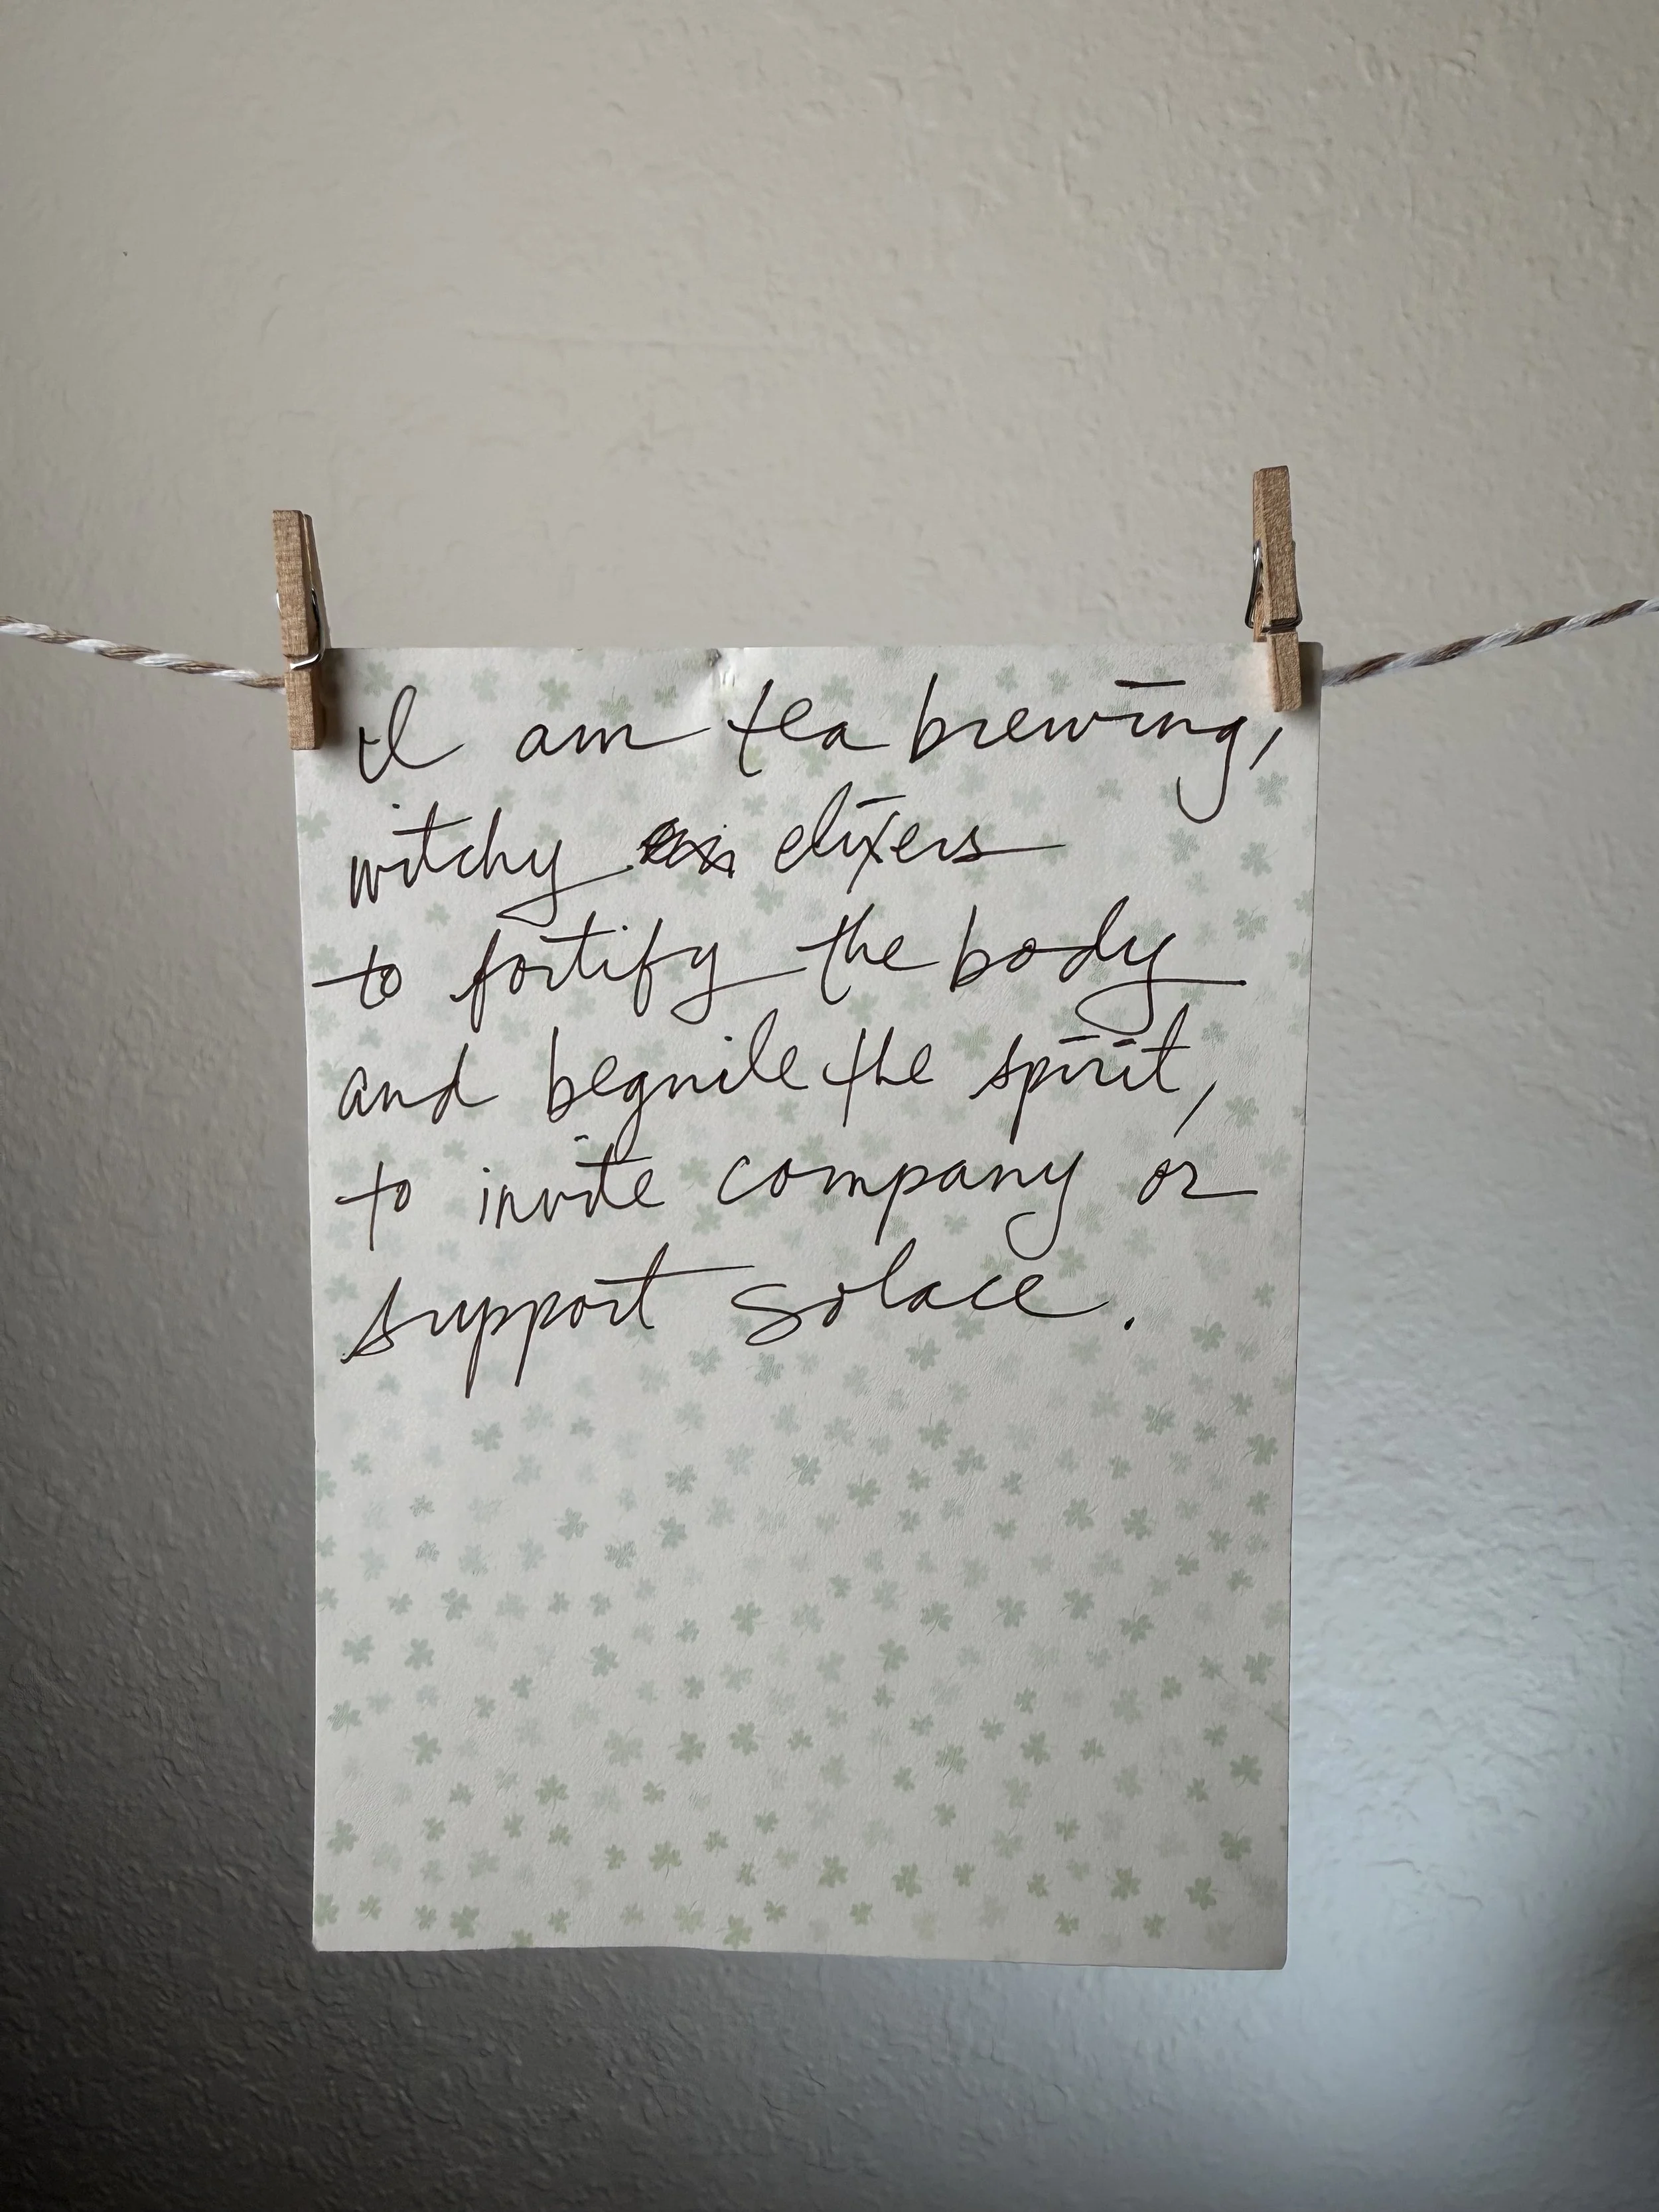 I am tea brewing,
witchy elixers
to fortify the body
and beguile the spirit,
to invite company or
support solace.